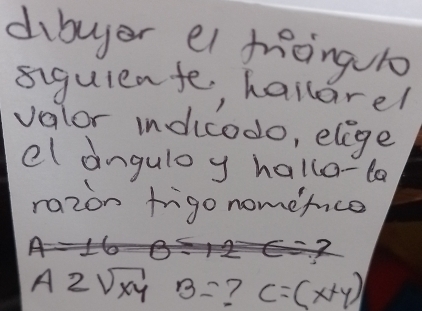 dibujar el triángulo
siguiente, hallar el
valor indicado, elige
el ángulo y halla-la
razón trigonométrica
A=16 B=12 C=?
A 2√xy B=? C=(x+y)